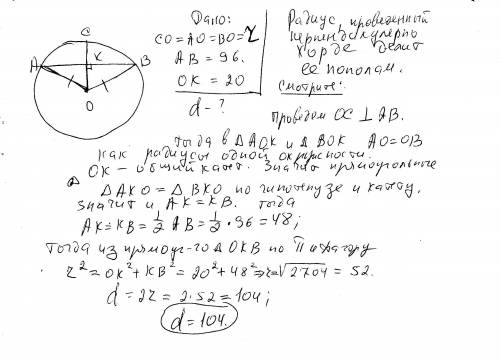 C
A
K
B
O
Дано:
CO=AO=BO=r
AB = 96.
OK = 20
d - ?
Радиус, проведенный
перпендикулярно
хорде делит
ее пополам.
Смотрите:
Проведем OC ⊥ AB.
Тогда в △AOK и △BOK AO=OB
как радиусы одной окружности.
OK - общий катет. Значит прямоугольные
△AKO = △BKO по гипотенузе и катету.
Значит и AK=KB. Тогда
AK=KB = 1/2 AB = 1/2 · 96 = 48;
Тогда из прямоуг-го △OKB по Пифагору
r² = OK² + KB² = 20² + 48² ⇒ r = √2704 = 52.
d = 2r = 2·52 = 104;
d = 104.